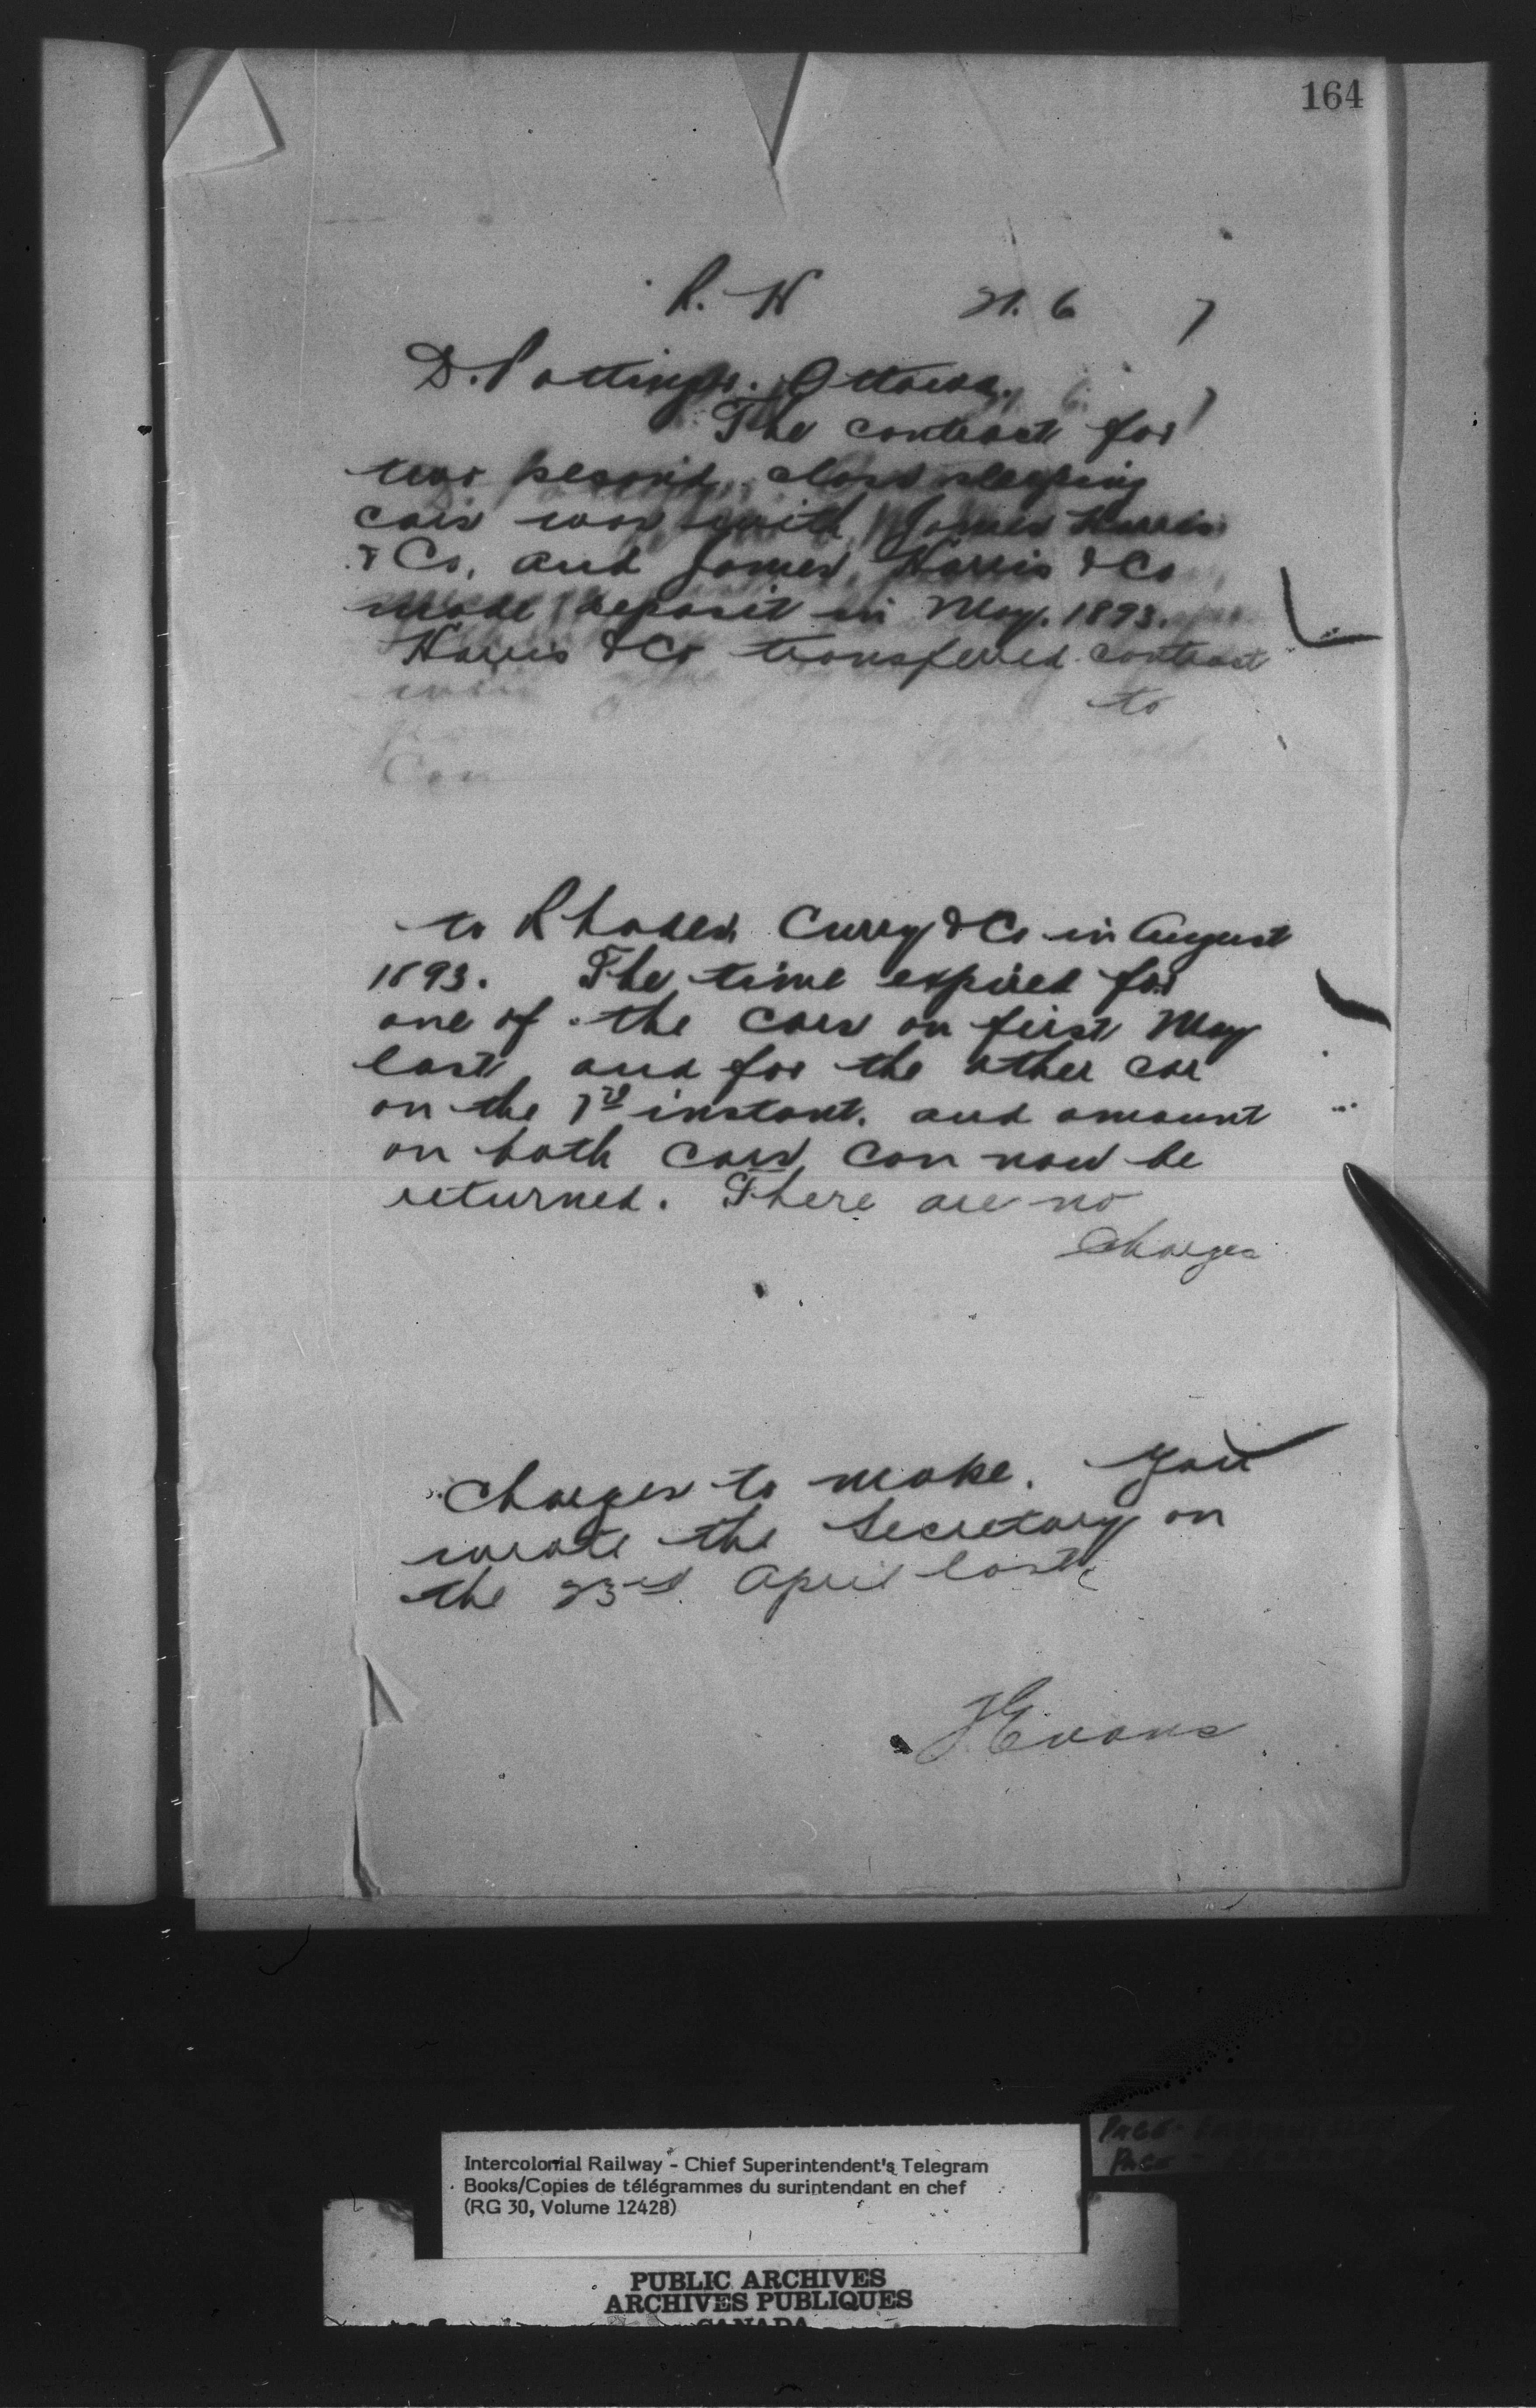 164
R. W 21. 6 7
D. Pottinger. Ottawa.
The contract for
two second class sleeping
cars was with James Harris
& Co. and James Harris & Co
made deposit in May. 1893.
Harris & Co transferred contract
to
Con
to Rhodes Curry & Co in August
1893. The time expired for
one of the cars on first May
last and for the other car
on the instant. and amount
on both cars can now be
returned. There are no
charges
Charges to make. You
wrote the Secretary on
the 23rd. April last.
J Evans
PAGE
PAGE
Intercolonial Railway - Chief Superintendent's Telegram
Books/Copies de télégrammes du surintendant en chef
(RG 30, Volume 12428)
PUBLIC ARCHIVES
ARCHIVES PUBLIQUES
CANADA